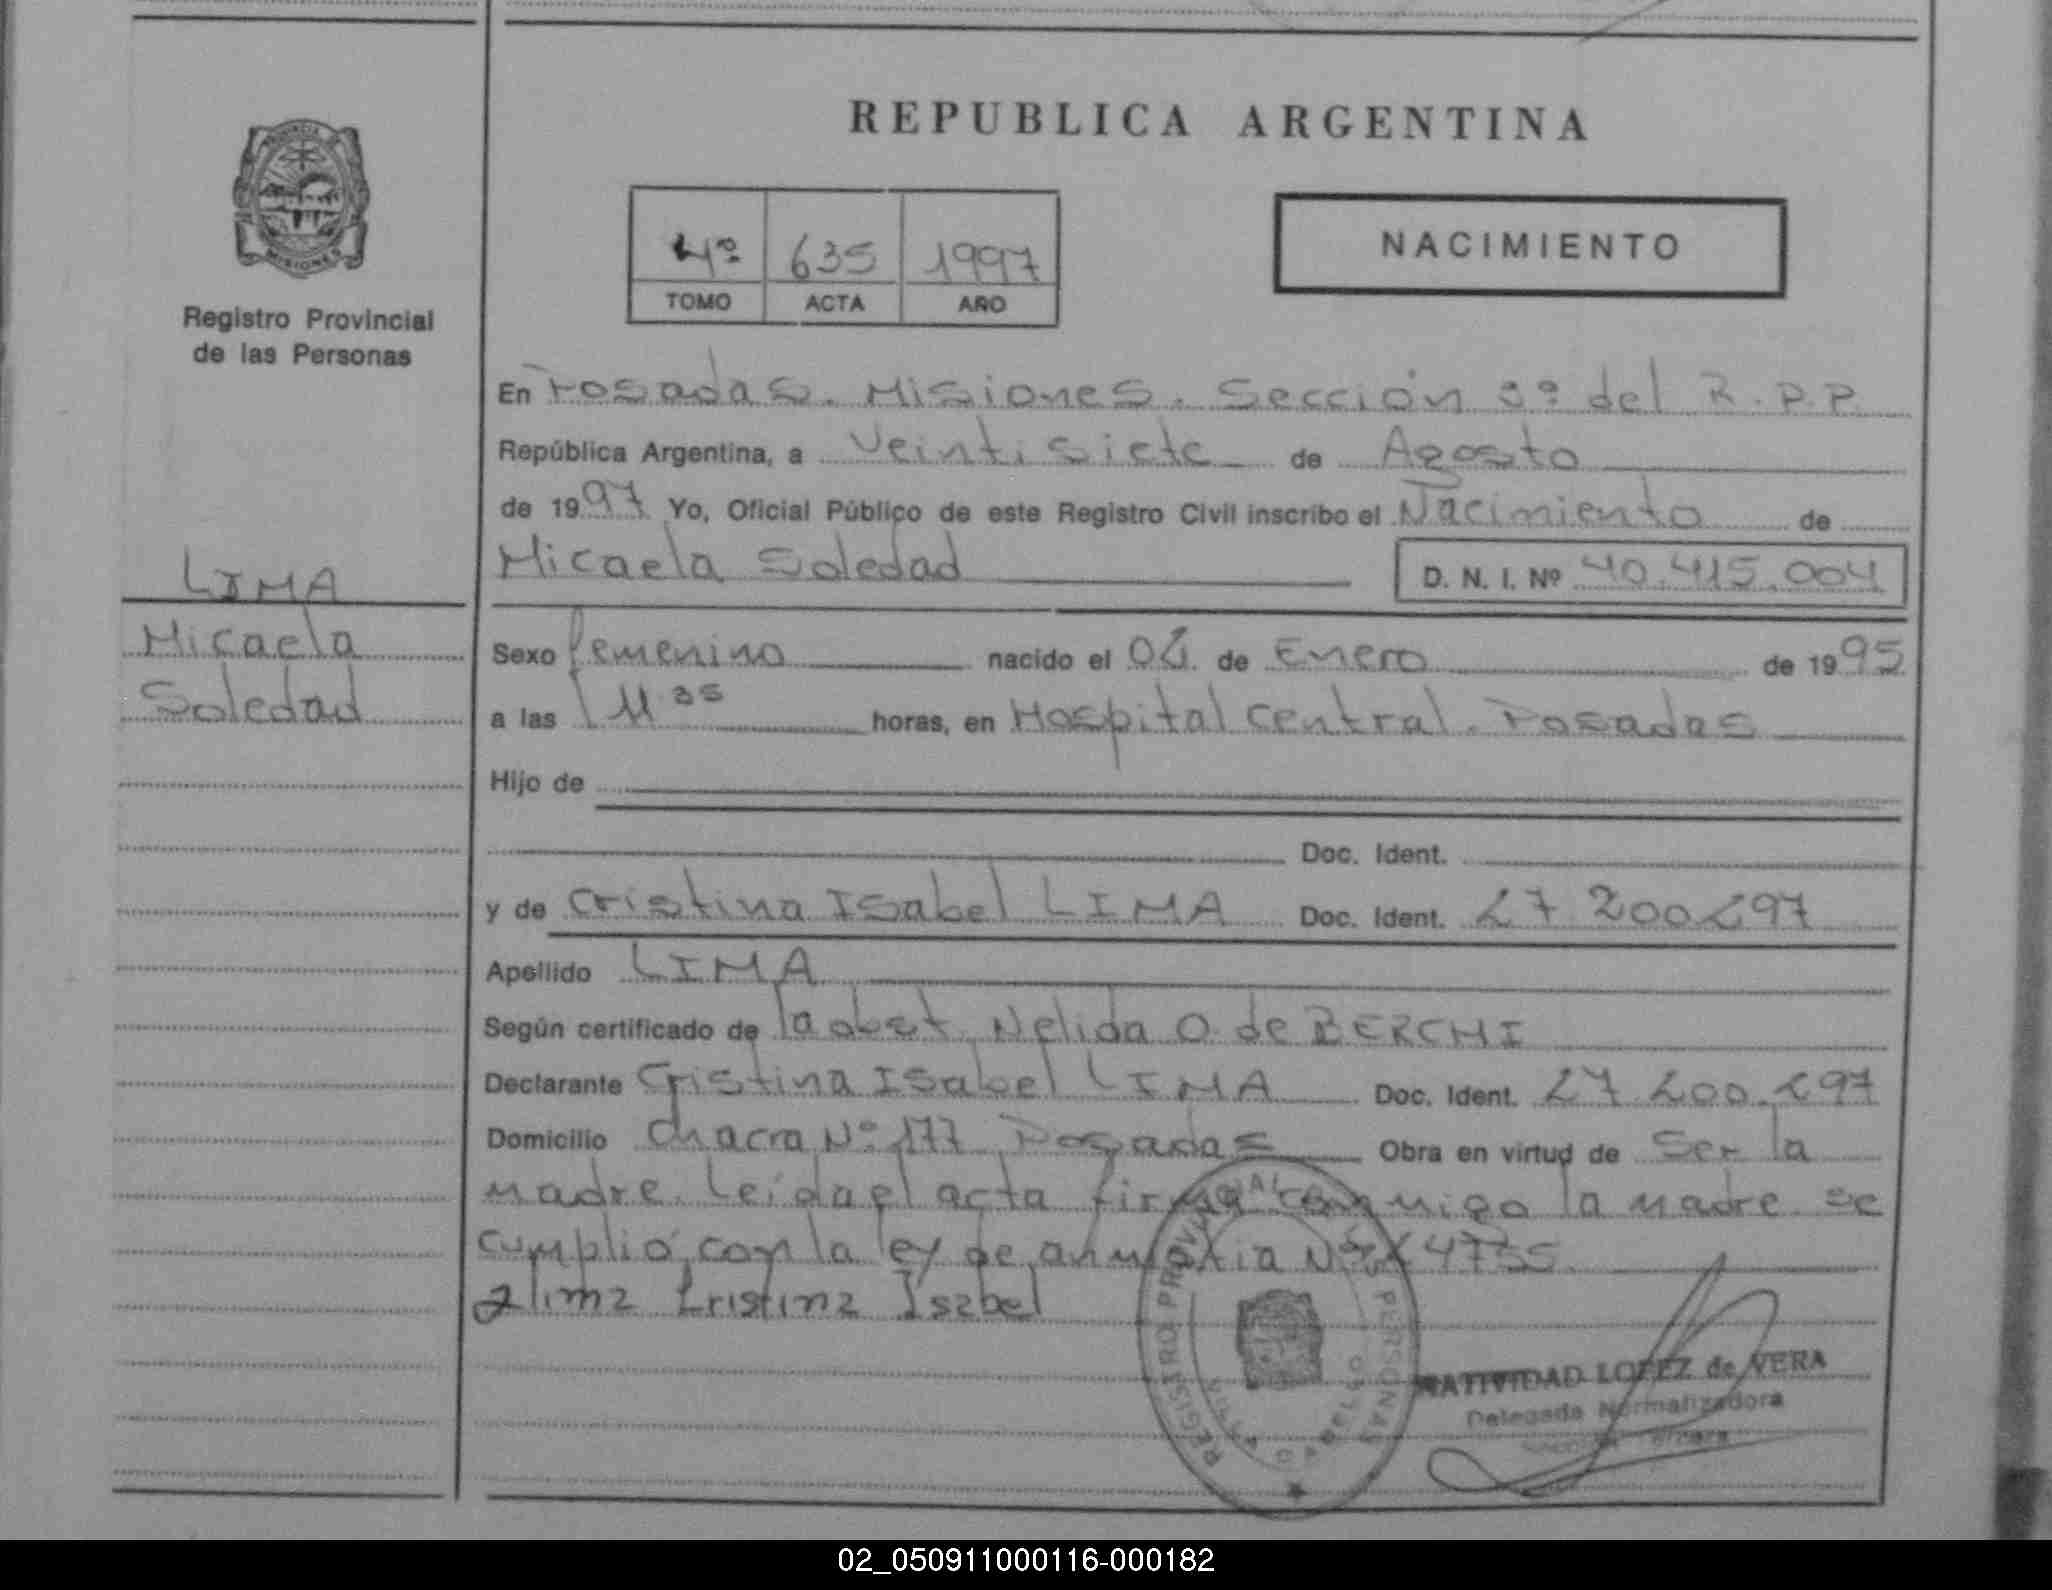 REPUBLICA ARGENTINA
PROVINCIA
MISIONES
Registro Provincial
de las Personas
4º 635 1997
TOMO ACTA AÑO
NACIMIENTO
En Posadas. Misiones. Sección 3º del R.P.P.
República Argentina, a Veintisiete de Agosto
de 1997 Yo, Oficial Público de este Registro Civil inscribo el Nacimiento de
Micaela Soledad D. N. I. Nº 40.415.004
LIMA
Micaela
Soledad
Sexo femenino nacido el de Enero de 1995
a las 11 35 horas, en Hospital Central. Posadas
Hijo de
Doc. Ident.
y de Cristina Isabel LIMA Doc. Ident. 27 200 297
Apellido LIMA
Según certificado de la obst. Nelida O. de BERCHI
Declarante Cristina Isabel LIMA Doc. Ident. 27.200.297
Domicilio Chacra Nº 177 Posadas Obra en virtud de Ser la
madre. Leida el acta firma conmigo la madre. se
cumplió con la ley de amnistia Nº 24755.
Lima Cristina Isabel
REGISTRO PROVINCIAL DE LAS PERSONAS
NATIVIDAD LOPEZ de VERA
Delegada Normalizadora
02_050911000116-000182